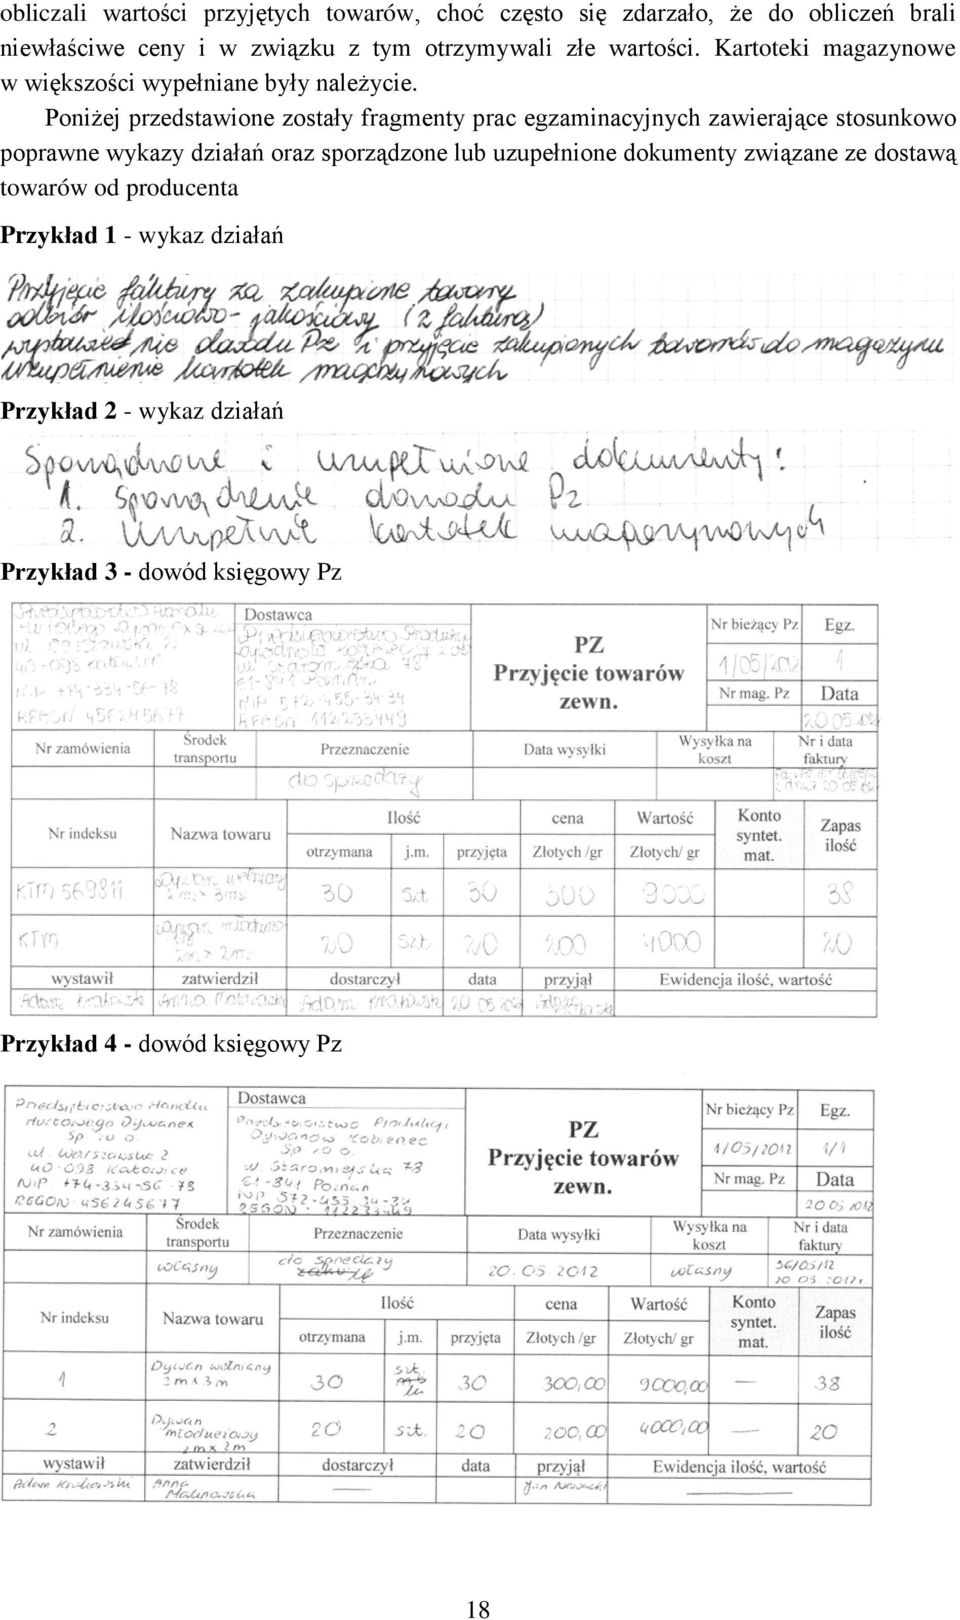 obliczali wartości przyjętych towarów, choć często się zdarzało, że do obliczeń brali
niewłaściwe ceny i w związku z tym otrzymywali złe wartości. Kartoteki magazynowe
w większości wypełniane były należycie.
Poniżej przedstawione zostały fragmenty prac egzaminacyjnych zawierające stosunkowo
poprawne wykazy działań oraz sporządzone lub uzupełnione dokumenty związane ze dostawą
towarów od producenta
Przykład 1 - wykaz działań
Przyjęcie faktury za zakupione towary
odbiór ilościowo-jakościowy (z fakturą)
wystawienie dowodu Pz i przyjęcie zakupionych towarów do magazynu
uzupełnienie kartotek magazynowych
Przykład 2 - wykaz działań
Sporządzone i uzupełnione dokumenty:
1. Sporządzenie dowodu Pz
2. Uzupełnić kartotek magazynowych
Przykład 3 - dowód księgowy Pz
Dostawca
PZ
Przyjęcie towarów
zewn.
Nr bieżący Pz Egz.
1/05/2012 1
Nr mag. Pz Data
20 05 2012
ul. Staromiejska 78
61-841 Poznań
40-093 Katowice
NIP 572-455-34-34
REGON 456245677
REGON 112233449
Nr zamówienia Środek transportu Przeznaczenie Data wysyłki Wysyłka na koszt Nr i data faktury
do sprzedaży
Nr indeksu Nazwa towaru Ilość cena Wartość Konto syntet. mat. Zapas ilość
otrzymana j.m. przyjęta Złotych /gr Złotych/ gr
KTM 569811 Dywan wełniany 2m x 3m 30 Szt. 30 300 9000 38
KTM 20 Szt 20 200 4000 20
wystawił zatwierdził dostarczył data przyjął Ewidencja ilość, wartość
Adam Krakowski Anna Malinowska Adam Krakowski 20 05 2012
Przykład 4 - dowód księgowy Pz
Przedsiębiorstwo Handlu
Hurtowego Dywanex
Sp. z o.o.
ul. Warszawska 2
40-098 Katowice
NIP 774-334-56-78
REGON 456245677
Dostawca
Przedsiębiorstwo Produkcji
Dywanów Kobierzec
Sp. z o.o.
ul. Staromiejska 78
61-841 Poznań
NIP 572-455-34-34
REGON 112233449
PZ
Przyjęcie towarów
zewn.
Nr bieżący Pz Egz.
1/05/2012 1/1
Nr mag. Pz Data
20 05 2012
Nr zamówienia Środek transportu Przeznaczenie Data wysyłki Wysyłka na koszt Nr i data faktury
własny do sprzedaży 20.05 2012 własny 36/05/12 20 05 2012r.
Nr indeksu Nazwa towaru Ilość cena Wartość Konto syntet. mat. Zapas ilość
otrzymana j.m. przyjęta Złotych /gr Złotych/ gr
1 Dywan wełniany 2m x 3m 30 szt. 30 300,00 9000,00 — 38
2 Dywan młodzieżowy 2m x 2m 20 szt. 20 200,00 4000,00 — 20
wystawił zatwierdził dostarczył data przyjął Ewidencja ilość, wartość
Adam Krakowski Anna Malinowska — Jan Nowacki —
18